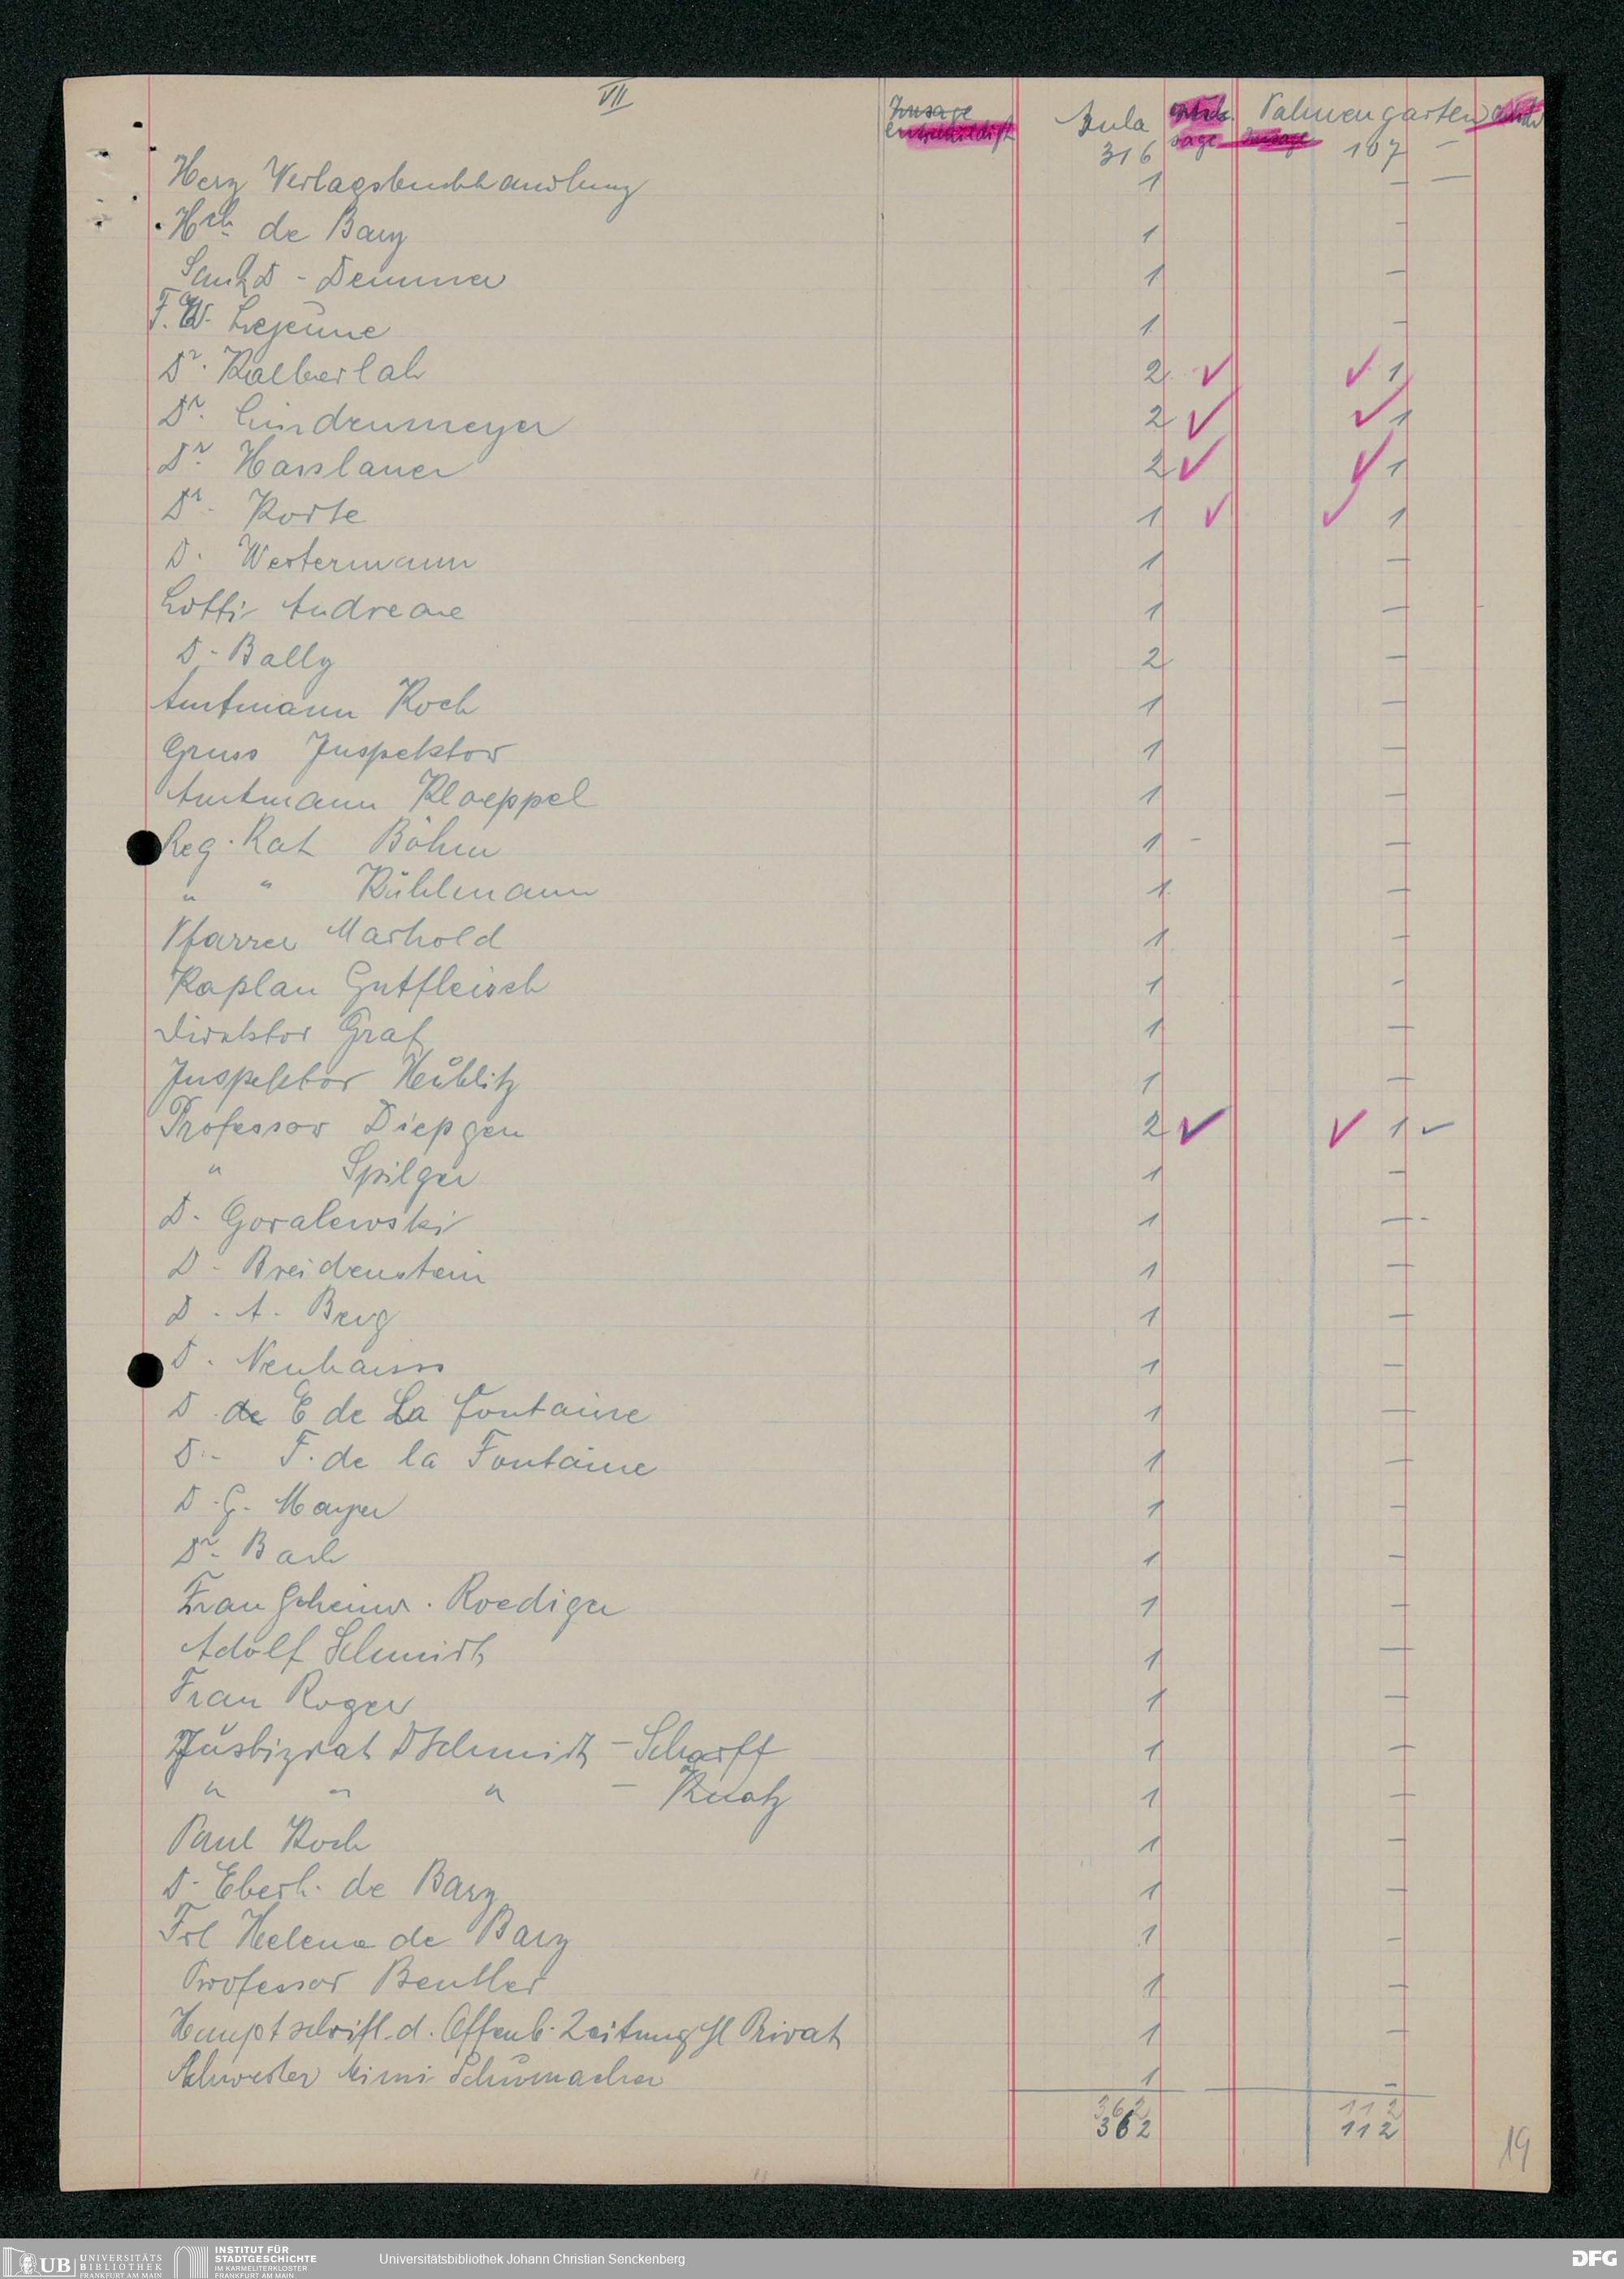 VII
Zusage
entschuldigt
Aula
sage
Zusage
Palmengarten
316
107 –
Herz Verlagsbuchhandlung 1 – –
Hch. de Bary 1 –
Demmer 1 –
F. W. Lejeune 1 –
Dr. Kalberlah 2 ✓ ✓ 1
Dr. Lindenmeyer 2 ✓ ✓ 1
Dr. Hasslauer 2 ✓ ✓ 1
Dr. Korte 1 ✓ ✓ 1
D. Westermann 1 –
Lotti Andreae 1 –
D. Bally 2 –
Amtmann Koch 1 –
Gruss Inspektor 1 –
Amtmann Kloeppel 1 –
Reg. Rat Böhm 1 – –
" " Kühlmann 1 –
Pfarrer Marhold 1 –
Kaplan Gutfleisch 1 –
Direktor Graf 1 –
Inspektor 1 –
Professor Diepgen 2 ✓ ✓ 1 ✓
" Spilger 1 –
D. Goralewski 1 –
D. Breidenstein 1 –
D. A. Berg 1 –
D. 1 –
D. de E de La Fontaine 1 –
D. F. de la Fontaine 1 –
D. G. Mayer 1 –
Dr. Bach 1 –
Frau Geheimr. Roediger 1 –
Adolf Schmidt 1 –
Frau Roger 1 –
Justizrat D Schmidt – Scharff 1 –
" " " – Knatz 1 –
Paul Koch 1 –
D. Eberh. de Bary 1 –
Frl Helene de Bary 1 –
Professor Beutler 1 –
Hauptschriftl. d. Offenb. Zeitung Hl Privat 1 –
Schwester Mimi Schumacher 1 –
362 112
362 112
19
UB UNIVERSITÄTS
BIBLIOTHEK
FRANKFURT AM MAIN
INSTITUT FÜR
STADTGESCHICHTE
IM KARMELITERKLOSTER
FRANKFURT AM MAIN
Universitätsbibliothek Johann Christian Senckenberg
DFG